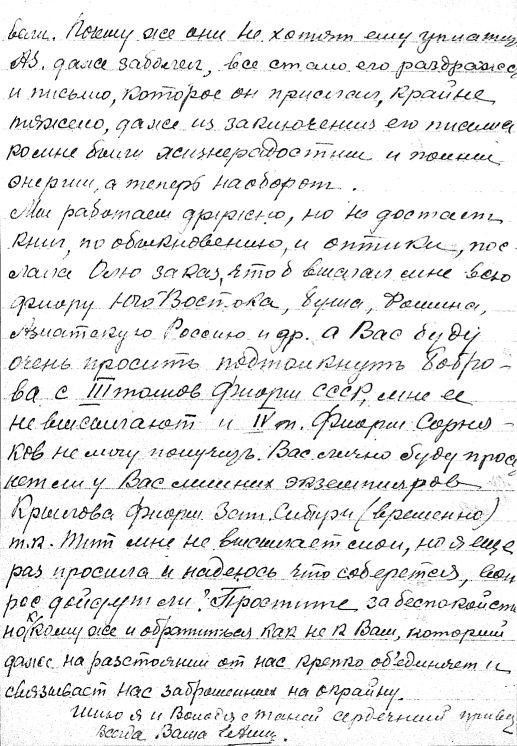 вали. Почему же они не хотят ему уплатить
Ал. даже заболел, все стало его раздражать
и письмо, которое он прислал, крайне
тяжело, даже из заключения его письма
ко мне были жизнерадостны и полны
энергии, а теперь наоборот.
Мы работаем дружно, но не достает
книг, по обыкновению, и оптики, пос-
лала Олю заказ, чтоб выслал мне всю
флору Юго Востока, Буша, Фомина,
Азиатскую Россию и др. а Вас буду
очень просить подтолкнуть Бобро-
ва с III томом Флоры СССР, мне ее
не высылают и IV т. Флоры Сорня-
ков не могу получить. Вас лично буду прос
нет ли у Вас лишних экземпляров
Крылова Флоры Зап. Сибири (временно)
т.к. мне не высылает свои, но я еще
раз просила и надеюсь что соберется, воп
рос дойдут ли? Простите за беспокойств
но к кому же и обратиться как не к Вам, который
даже на расстоянии от нас крепко об'единяет и
связывает нас заброшенных на окраину.
Шлю я и Володя с Таней сердечный привет
Всегда Ваша